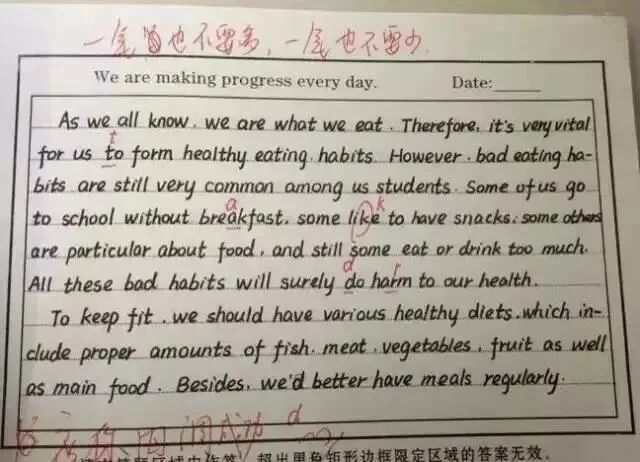 一尾も不要多，一尾也不要少.
We are making progress every day. Date:
As we all know, we are what we eat. Therefore, it's very vital
t
for us to form healthy eating habits. However, bad eating ha-
bits are still very common among us students. Some of us go
a k
to school without breakfast, some like to have snacks, some others
are particular about food, and still some eat or drink too much.
d r
All these bad habits will surely do harm to our health.
To keep fit, we should have various healthy diets, which in-
clude proper amounts of fish, meat, vegetables, fruit as well
as main food. Besides, we'd better have meals regularly.
成功 d
超出黑色矩形边框限定区域的答案无效。